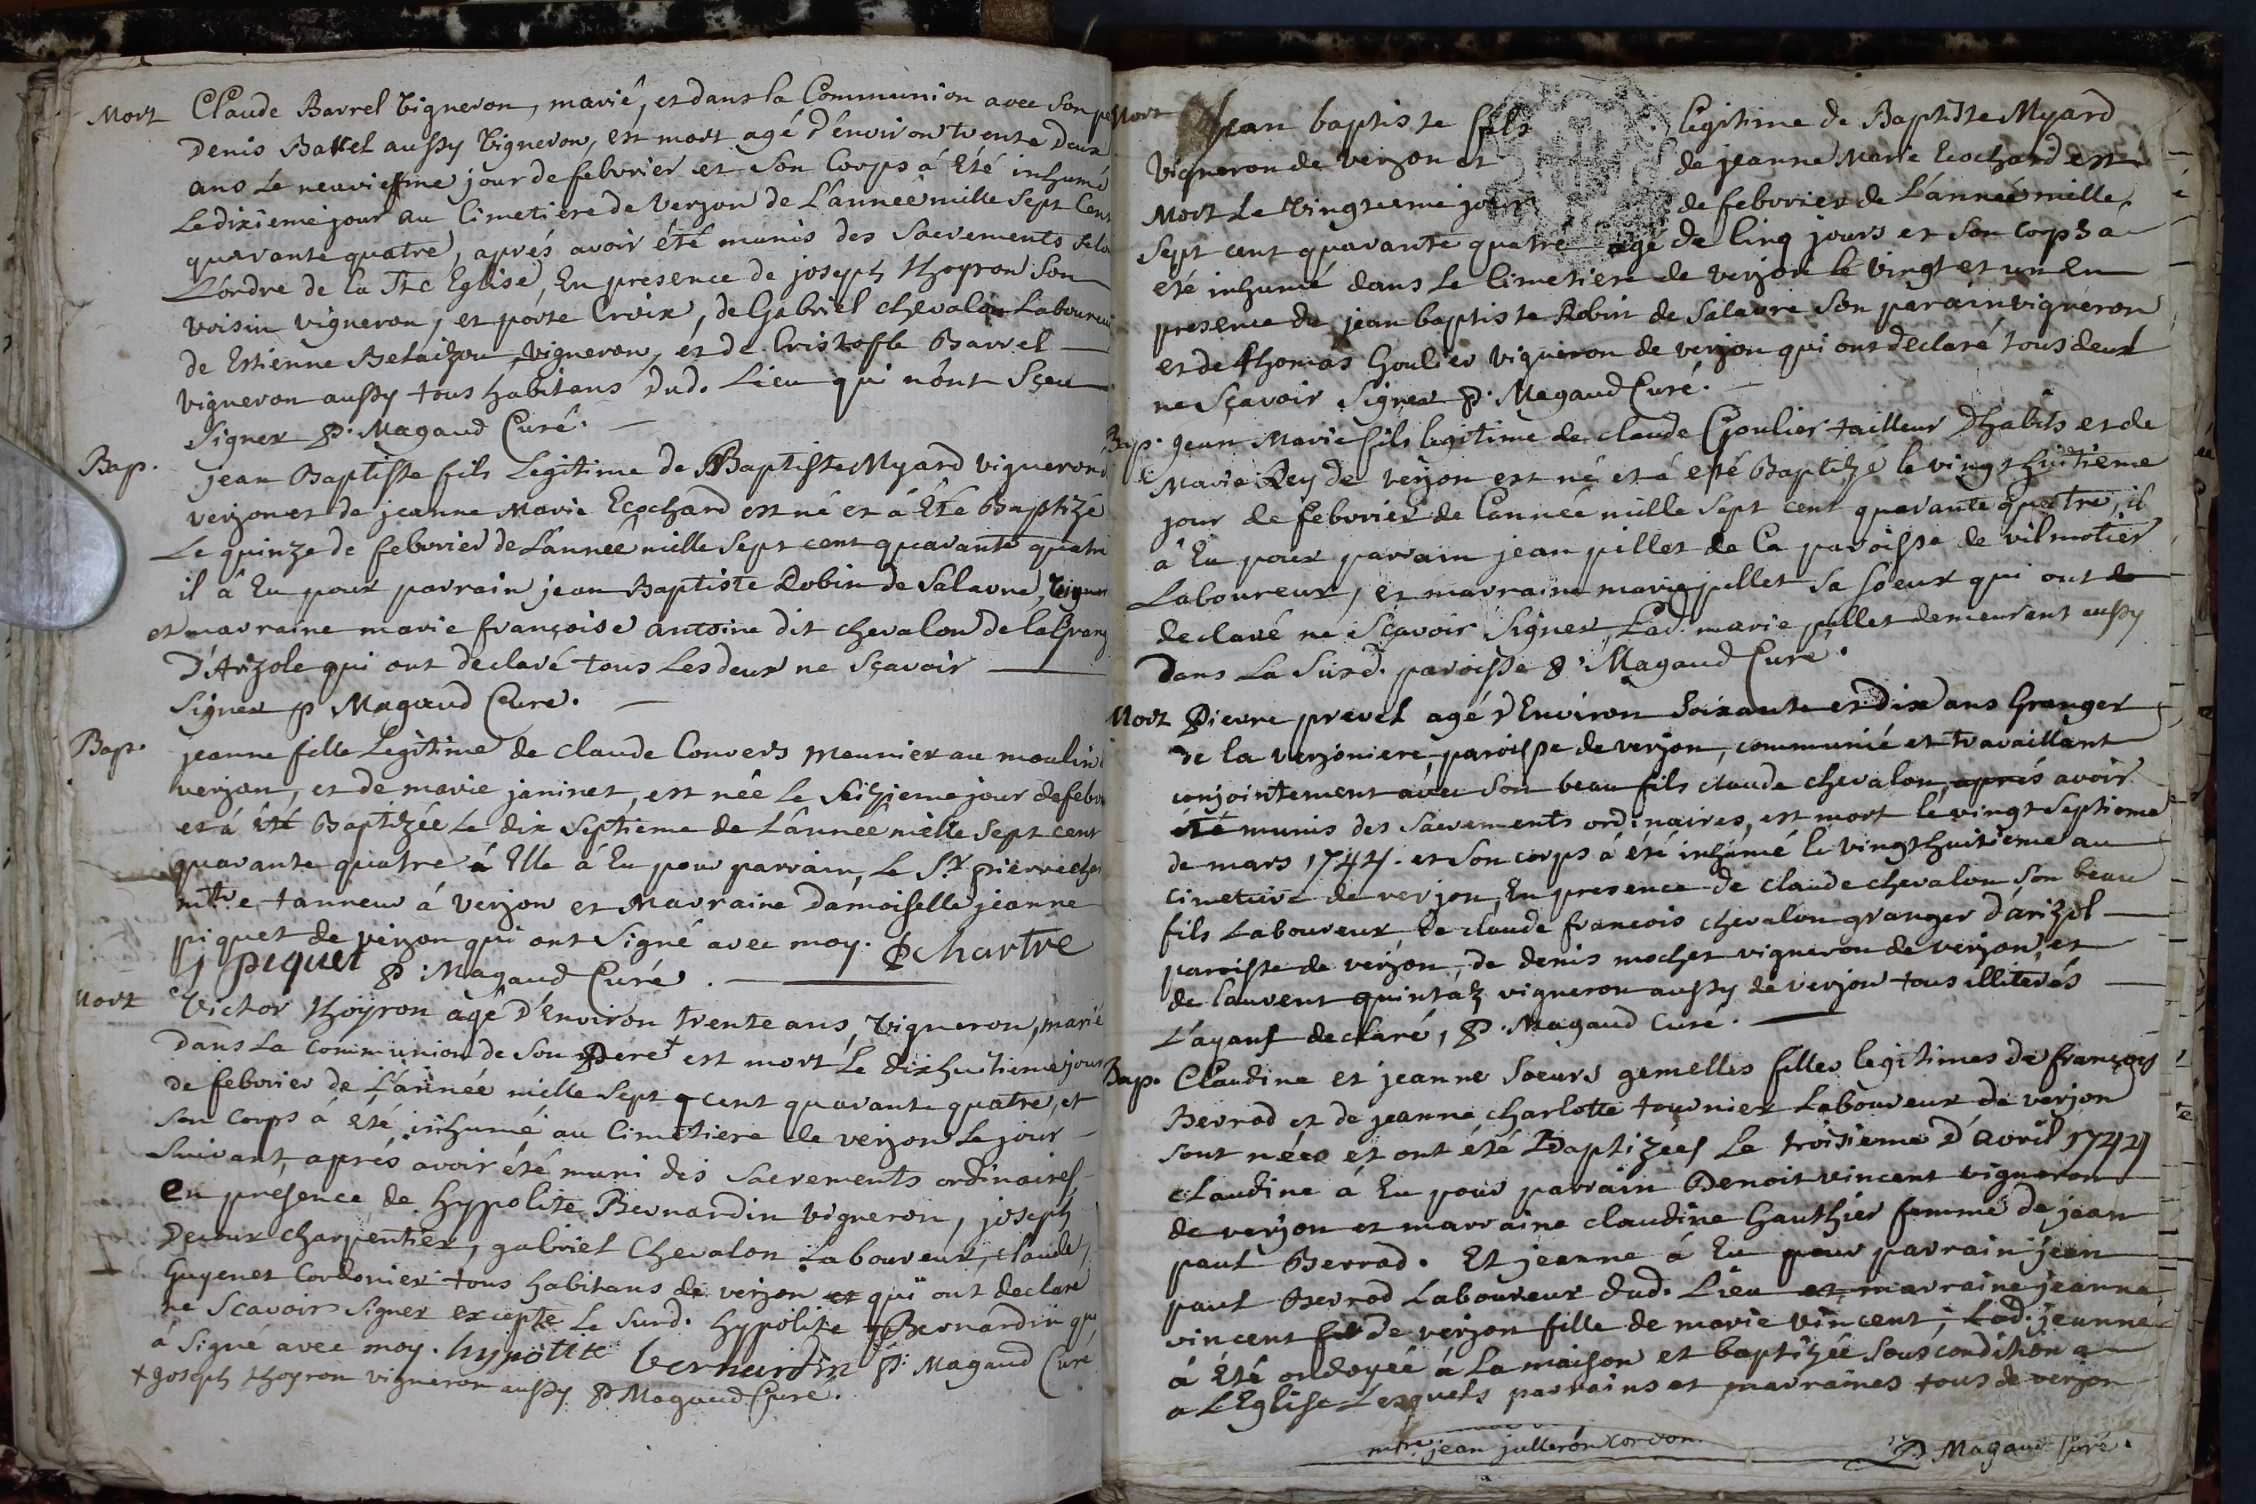 Mort Claude Barrel Vigneron, marié, et dans la Communion avec son pe
Denis Barrel aussy Vigneron, est mort agé d'environ trente deux
ans Le neuviesme jour de febvrier et Son Corps á Eté inhumé
Le dixieme jour au Cimetiere de Verjon de L'année mille Sept Cent
quarante quatre, aprés avoir été munis des Sacrements selon
L'ordre de la Ste Eglise, En presence de joseph thoyron Son
voisin vigneron, et porte Croix, de Gabriel chevalon Laboureur
de Estienne Vigneron, et de Cristofle Barrel
vigneron aussy tous habitans dud. Lieu qui n'ont Sçeu
Signer P. Magaud Curé.
Bap. jean Baptiste fils Legitime de Baptiste Myard vigneron
verjon et de jeanne Marie Ecochard est né et á Eté Baptizé
Le quinze de febvrier de L'année mille Sept cent quarante quatre
il â Eu pour parrain jean Baptiste Robin de Salavre, Vigner
et marraine marie françoise antoine dit chevalon de la Grang
D'Arizole qui ont declaré tous Les deux ne Sçavoir
Signer P Magaud Curé.
Bap. jeanne fille Legitime de Claude Convers Meunier au moulin
verjon, et de marie janinet, est née Le Seizieme jour de febv
et á été Baptizée Le dix Septieme de L'année mille Sept cent
quarante quatre á Elle á Eu pour parrain, Le Sr pierre char
mtre tanneur á Verjon et Marraine Damoiselle jeanne
piquet de verjon qui ont Signé avec moy. P chartre
J piquet P. Magaud Curé.
Mort Victor thoyron agé d'Environ trente ans, Vigneron, marié
Dans La Communion de Son Pere + est mort Le dixhuitieme jour
de febvrier de L'année mille Sept cent quarante quatre, et
Son Corps á Eté inhumé au Cimetiere de verjon Le jour
Suivant, aprés avoir été muni des Sacrements ordinaires
en présence de Hyppolite Bernardin Vigneron, joseph
Decour charpentier, gabriel Chevalon Laboureur, claude
Guyenet Cordonier tous habitans de verjon et qui ont declaré
ne Scavoir Signer excepte Le Surd. Hyppolite Bernardin qui
á Signé avec moy. hypolite bernardin P. Magaud Curé
+ joseph thoyron vigneron aussy P Magaud Curé.
Mort Jean baptiste fils legitime de Baptiste Myard
Vigneron de verjon et de jeanne Marie Ecochard est
Mort Le Vingtieme jour de febvrier de L'année mille
Sept cent quarante quatre agé de Cinq jours et Son corps a
été inhumé dans Le Cimetiere de verjon le Vingt et un En
presence de jean baptiste Robin de Salavre Son parain vigneron
et de thomas Goulier Vigneron de verjon qui ont declaré tous deux
ne Sçavoir Signer P. Magaud Curé.
Bap. Jean Marie fils legitime de claude Goulier tailleur d'habits et de
Marie Rey de verjon est né et á eté Baptizé le vingt huitieme
jour de febvrier de L'année mille Sept cent quarante quatre, il
á Eu pour parrain jean pillet de La paroisse de vilmotier
Laboureur, et marraine marie pillet Sa soeur qui ont de
declaré ne Sçavoir Signer, Lad. marie pillet demeurant aussy
dans La Susd. paroisse P. Magaud Curé.
Mort Pierre prevel agé d'Environ Soixante et Dix ans Granger
de la verjoniere, paroisse de verjon, communié et travaillant
conjointement avec Son beau fils claude chevalon, aprés avoir
été munis des Sacrements ordinaires, est mort le vingt Septieme
de mars 1744. et Son corps á été inhumé le vingt huitieme au
cimetiere de verjon, En presence de claude chevalon Son beau
fils Laboureur de claude francois chevalon granger d'arizol
paroisse de verjon, de denis mochet vigneron de verjon, et
de laurent quintal vigneron aussy de verjon tous illiterés
L'ayant declaré, P. Magaud Curé.
Bap. Claudine et jeanne Soeurs gemelles filles legitimes de françois
Berrod et de jeanne charlotte tournier Laboureur de verjon
Sont nées et ont été Baptizées Le troisieme d'avril 1744
Claudine á Eu pour parrain Benoit vincent vigneron
de verjon et marraine claudine Gauthier femme de jean
paul Berrod. Et jeanne á Eu pour parrain jean
paul Berrod Laboureur dud. Lieu et marraine jeanne
vincent de verjon fille de marie vincent, Lad. jeanne
á Eté ondoyée á La maison et baptizée Sous condition a
a L'Eglise Lesquels parrains et marraines tous de verjon
mtre jean julleron cordon. P Magaud Curé.